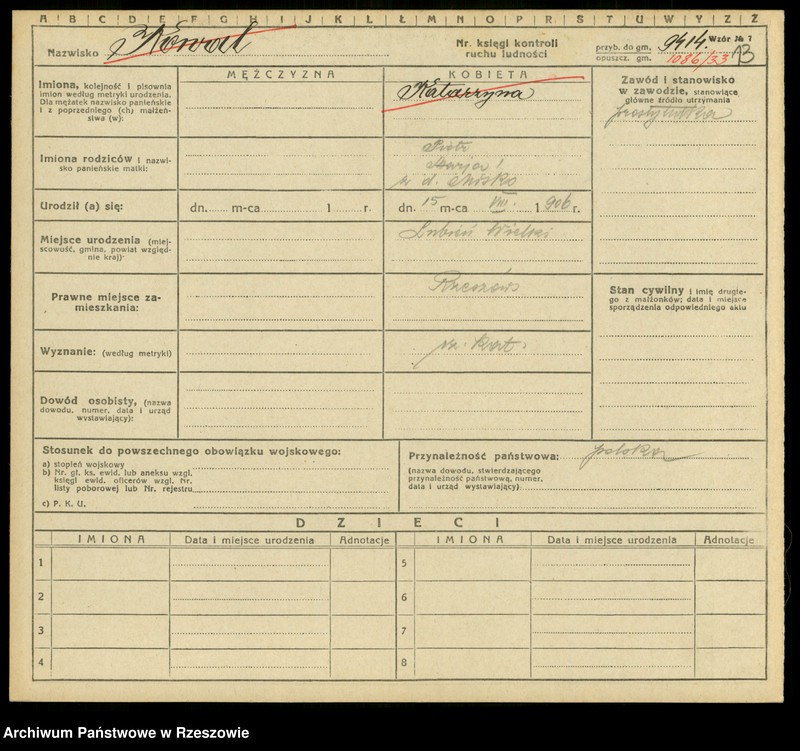 A B C D E F G H I J K L Ł M N O P R S T U W Y Z Ż
Nazwisko Kowal
Nr. księgi kontroli
ruchu ludności
przyb. do gm. 9414.
opuszcz. gm. 1086/33
Wzór № 7
13
MĘŻCZYZNA
KOBIETA
Imiona, kolejność i pisownia
imion według metryki urodzenia.
Dla mężatek nazwisko panieńskie
i z poprzedniego (ch) małżeń-
stwa (w):
Katarzyna
Zawód i stanowisko
w zawodzie, stanowiące
główne źródło utrzymania
prostytutka
Imiona rodziców i nazwi-
sko panieńskie matki:
Piotr
Marja
z d. Misko
Urodził (a) się:
dn. m-ca 1 r.
dn. 15 m-ca VIII. 1.906 r.
Miejsce urodzenia (miej-
scowość, gmina, powiat względ-
nie kraj):
Lubień Wielki
Prawne miejsce za-
mieszkania:
Rzeszów
Stan cywilny i imię drugie-
go z małżonków; data i miejsce
sporządzenia odpowiedniego aktu
Wyznanie: (według metryki)
rz. kat.
Dowód osobisty, (nazwa
dowodu, numer, data i urząd
wystawiający):
Stosunek do powszechnego obowiązku wojskowego:
a) stopień wojskowy
b) Nr. gł. ks. ewid. lub aneksu wzgl.
księgi ewid. oficerów wzgl. Nr.
listy poborowej lub Nr. rejestru
c) P. K. U.
Przynależność państwowa: polska
(nazwa dowodu, stwierdzającego
przynależność państwową, numer,
data i urząd wystawiający)
DZIECI
IMIONA Data i miejsce urodzenia Adnotacje IMIONA Data i miejsce urodzenia Adnotacje
1 5
2 6
3 7
4 8
Archiwum Państwowe w Rzeszowie